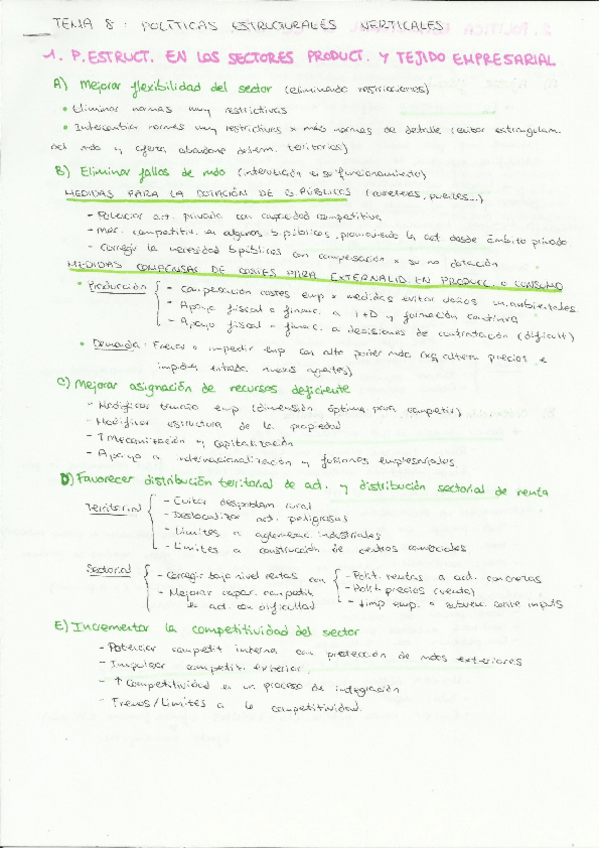 TEMA 8: POLÍTICAS ESTRUCTURALES VERTICALES
1. P. ESTRUCT. EN LOS SECTORES PRODUCT. Y TEJIDO EMPRESARIAL
A) Mejorar flexibilidad del sector (eliminando restricciones)
• Eliminar normas muy restrictivas
• Intercambiar normas muy restrictivas x más normas de detalle (evitar estrangulam.
del mdo y abandono determ. territorios)
B) Eliminar fallos de mdo (intervención en su funcionamiento)
MEDIDAS PARA LA DOTACIÓN DE B. PÚBLICOS (carreteras, puentes...)
- Potenciar act. privada con capacidad competitiva
- Mer. competitiv. en algunos b. públicos, promoviendo la act desde ámbito privado
- Corregir la necesidad b. públicos con compensación x su no dotación
MEDIDAS COMPENSAC DE COSTES PARA EXTERNALID. EN PRODUCC. O CONSUMO
• Producción { - compensación costes emp x medidas evitar daños m.ambientales
- Apoyo fiscal o financ. a I+D y formación continua
- Apoyo fiscal o financ. a decisiones de contratación (dificult)
• Demanda: Frenar o impedir emp con alto poder mdo altera precios e
impiden entrada nuevos agentes)
C) Mejorar asignación de recursos deficiente
- Modificar tamaño emp (dimensión óptima para competir)
- Modificar estructura de la propiedad
- ↑ Mecanización y capitalización
- Apoyo a internacionalización y fusiones empresariales
D) Favorecer distribución territorial de act. y distribución sectorial de renta
Territorial { - Evitar despoblam rural
- Deslocalizar act. peligrosas
- Límites a aglomerac. industriales
- Límites a construcción de centros comerciales
Sectorial { - Corregir bajo nivel rentas con { - Polít. rentas a act. concretas
- Mejorar capac. competit. - Polít precios (venta)
en act con dificultad - ↓ imp emp. o subvenc. sobre inputs
E) Incrementar la competitividad del sector
- Potenciar competit interna con protección de mdos exteriores
- Impulsar competit. exterior
- ↑ Competitividad en un proceso de integración
- Frenos/Límites a la competitividad.